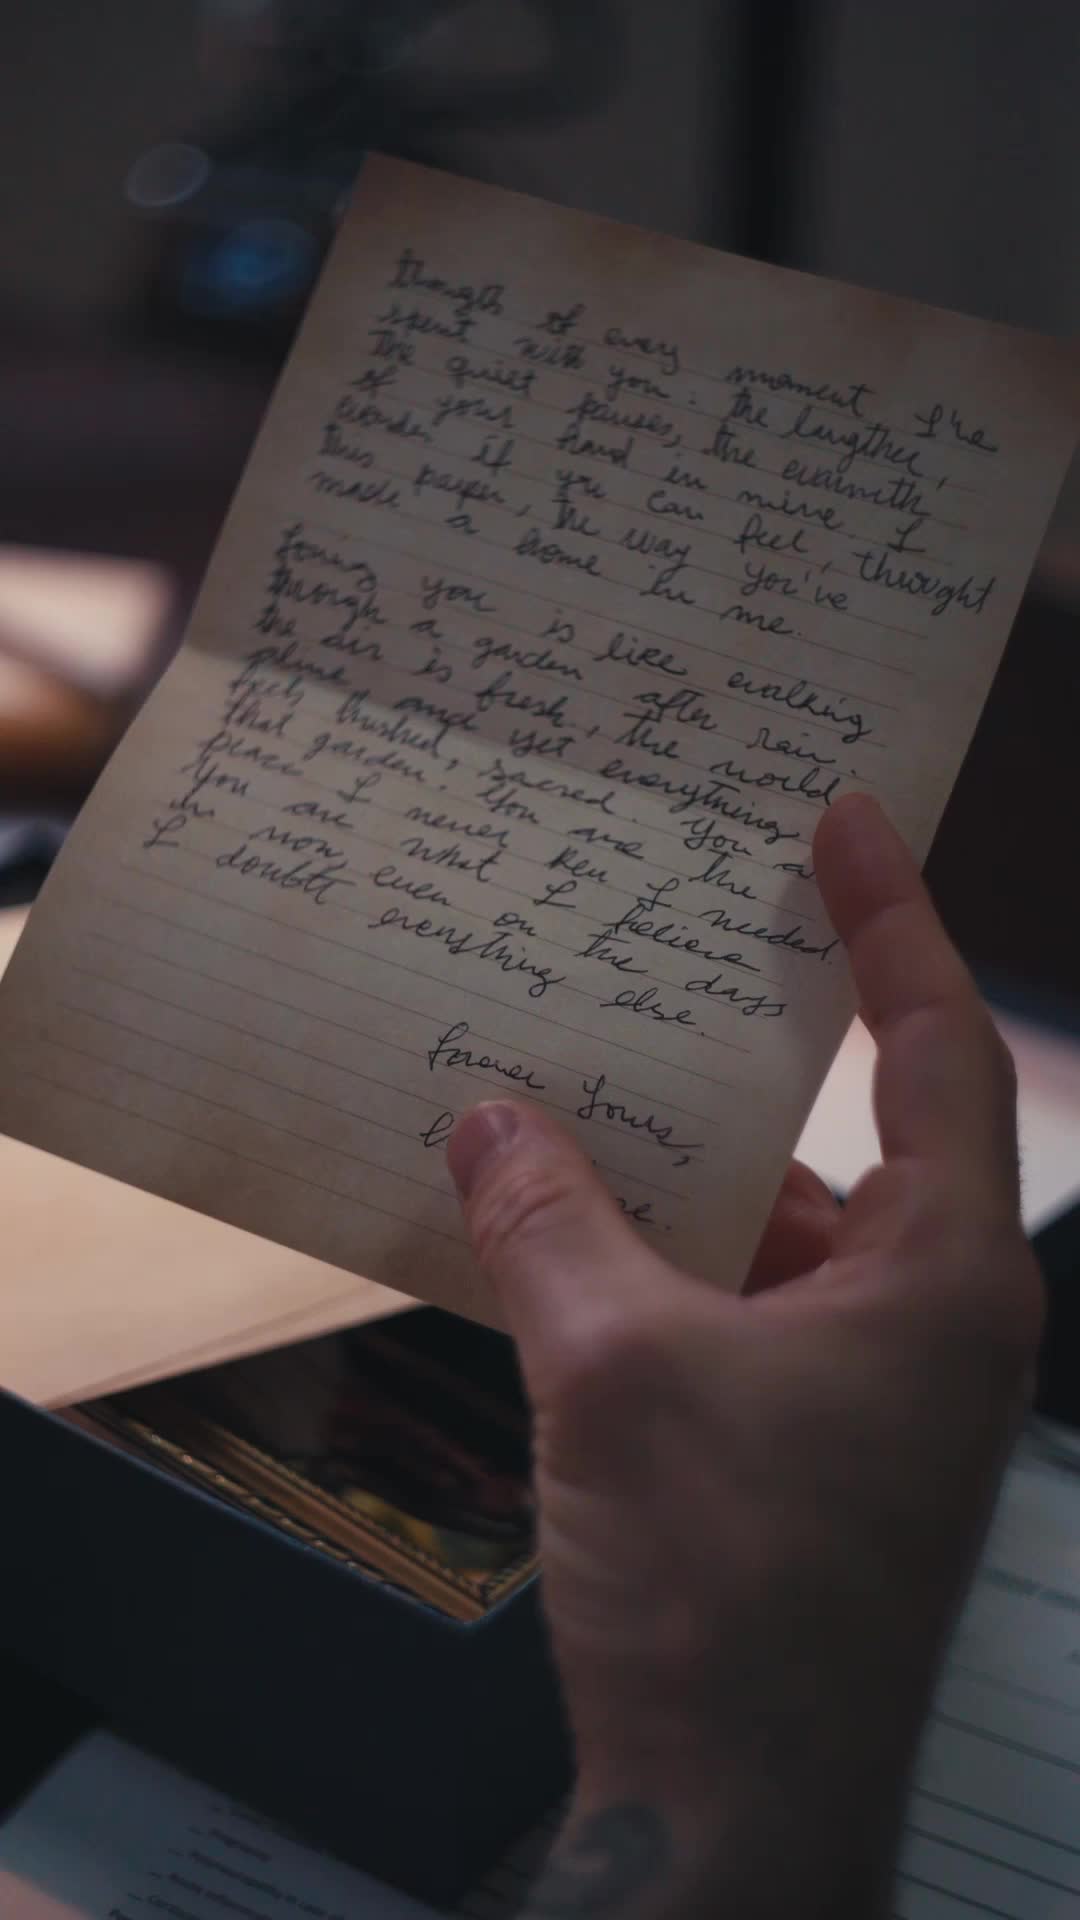 through of every moment I've
spent with you. the laugther,
The quiet pauses, the warmth
of your hand in mine. I
wonder if you can feel, throught
this paper, the way you've
made a home in me.
Loving you is like walking
through a garden after rain.
the air is fresh, the world
and yet everything
feels hushed, sacred. You a
that garden. You are the
peace I never I needed.
You are what I believe
in now, even on the days
I doubt everything else.
Forever Yours,